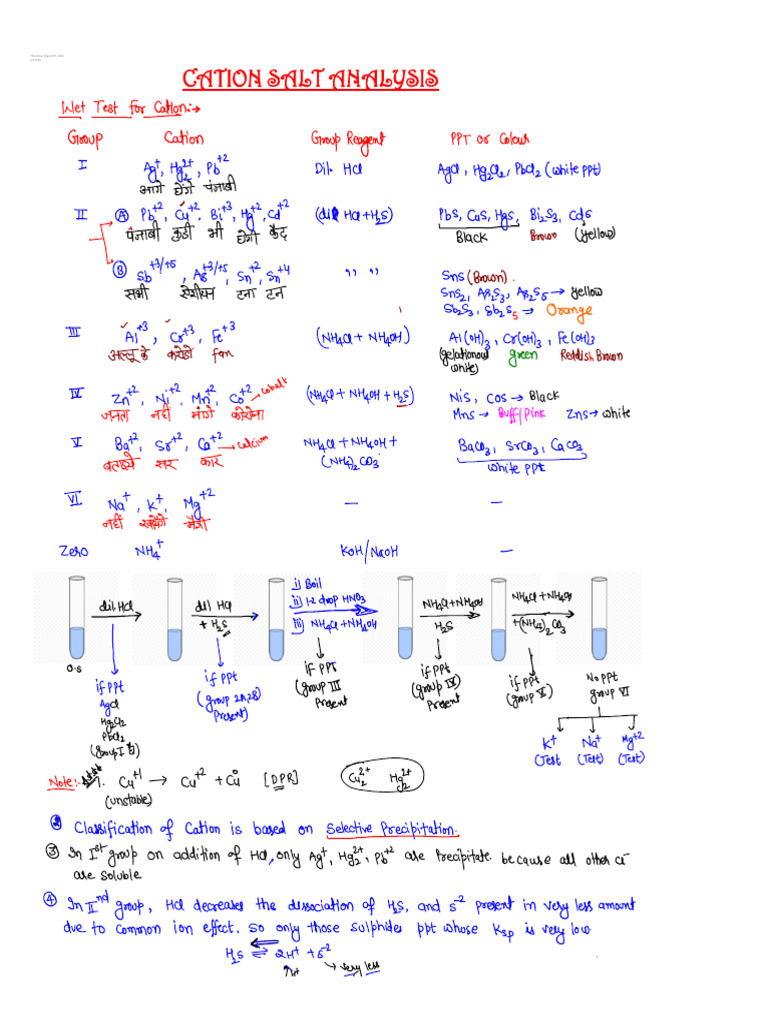 CATION SALT ANALYSIS
Wet Test for Cation:→
Group Cation Group Reagent PPT or Colour
I Ag⁺, Hg₂²⁺, Pb⁺² Dil. HCl AgCl, Hg₂Cl₂, PbCl₂ (white ppt)
आगे घेंगे पंजाबी
II Ⓐ Pb⁺², Cu⁺², Bi⁺³, Hg⁺², Cd⁺² (dil HCl+H₂S) PbS, CuS, HgS, Bi₂S₃, CdS
पंजाबी कुडी भी घेगी कैद Black Brown (Yellow)
Ⓑ Sb⁺³/⁺⁵, As⁺³/⁺⁵, Sn⁺², Sn⁺⁴ ,, ,, SnS (Brown).
सभी टना टन SnS₂, As₂S₃, As₂S₅ → yellow
Sb₂S₃, Sb₂S₅ → Orange
III Al⁺³, Cr⁺³, Fe⁺³ (NH₄Cl + NH₄OH) Al(OH)₃, Cr(OH)₃, Fe(OH)₃
अल्लू के करोडो fan (gelationous white) green Reddish Brown
IV Zn⁺², Ni⁺², Mn⁺², Co⁺² → Cobalt (NH₄Cl + NH₄OH + H₂S) NiS, CoS → Black
जनता नहीं मांगे कोरोना MnS → Buff/Pink ZnS → white
V Ba⁺², Sr⁺², Ca⁺² → Calcium NH₄Cl + NH₄OH + (NH₄)₂CO₃ BaCO₃, SrCO₃, CaCO₃
बताइये सर कार white ppt
VI Na⁺, K⁺, Mg⁺² — —
नहीं मैगी
Zero NH₄⁺ KOH/NaOH —
dil.HCl
dil HCl + H₂S
i) Boil
ii) 1-2 drop HNO₃
iii) NH₄Cl + NH₄OH
NH₄Cl+NH₄OH H₂S
NH₄Cl + NH₄OH +(NH₄)₂CO₃
O.S
if PPT AgCl Hg₂Cl₂ PbCl₂ (group I)
if PPT (group 2A,2B) Present)
if PPT (group III Present
if PPt (group IV) Present
if PPt (group V)
No PPt group VI
K⁺ Na⁺ Mg⁺²
(Test (Test) (Test)
Note:- 1. Cu⁺¹ → Cu⁺² + Cu° [DPR] Cu₂²⁺ Hg₂²⁺
(unstable)
② Classification of Cation is based on Selective Precipitation.
③ In Iˢᵗ group on addition of HCl, only Ag⁺, Hg₂²⁺, Pb⁺² are Precipitate because all other Cl⁻
are soluble
④ In IIⁿᵈ group, HCl decreases the dissociation of H₂S, and S⁻² present in very less amount
due to common ion effect. So only those sulphides ppt whose Ksp is very low
H₂S ⇌ 2H⁺ + S⁻²
→ very less